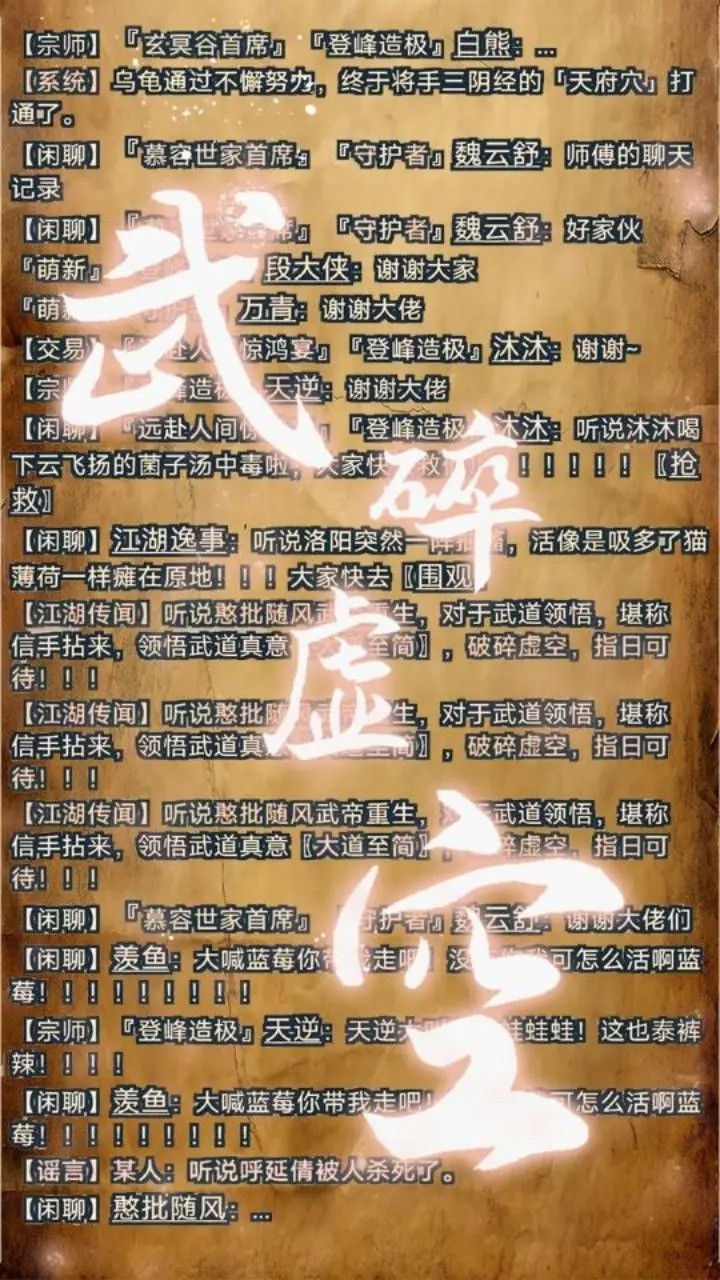 【宗师】『玄冥谷首席』『登峰造极』白熊：...
【系统】乌龟通过不懈努力，终于将手三阴经的「天府穴」打
通了。
【闲聊】『慕容世家首席』『守护者』魏云舒：师傅的聊天
记录
【闲聊】『守护者』魏云舒：好家伙
『萌新』段大侠：谢谢大家
『萌 万青：谢谢大佬
【交易】惊鸿宴』『登峰造极』沐沐：谢谢~
【宗 峰造极 天逆：谢谢大佬
【闲 『远赴人间惊 』『登峰造极 沐沐：听说沐沐喝
下云飞扬的菌子汤中毒啦，大家快 ！！！！！〖抢
救〗
【闲聊】江湖逸事：听说洛阳突然一阵 ，活像是吸多了猫
薄荷一样瘫在原地！！！大家快去〖围观
【江湖传闻】听说憨批随风武 重生，对于武道领悟，堪称
信手拈来，领悟武道真意 大道至简〗，破碎虚空，指日可
待！！！
【江湖传闻】听说憨批随风武帝重生，对于武道领悟，堪称
信手拈来，领悟武道真意 大道至简〗，破碎虚空，指日可
待！！！
【江湖传闻】听说憨批随风武帝重生，对于武道领悟，堪称
信手拈来，领悟武道真意〖大道至简〗，破碎虚空，指日可
待！！！
【闲聊】『慕容世家首席』『守护者』魏云舒：谢谢大佬们
【闲聊】羡鱼：大喊蓝莓你带我走吧！没 可怎么活啊蓝
莓！！！！！！！！！
【宗师】『登峰造极』天逆：天逆大 蛙蛙蛙！这也泰裤
辣！！！！
【闲聊】羡鱼：大喊蓝莓你带我走吧！ 可怎么活啊蓝
莓！！！！！！！！！
【谣言】某人：听说呼延倩被人杀死了。
【闲聊】憨批随风：...
武
碎
虚
空